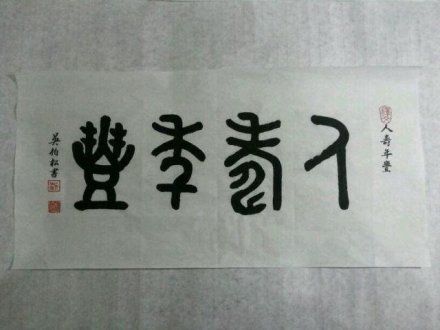 人壽年豐
人壽年豐
吴柏松書